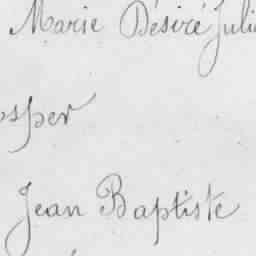 Marie Désiré Juli
osper
Jean Baptiste